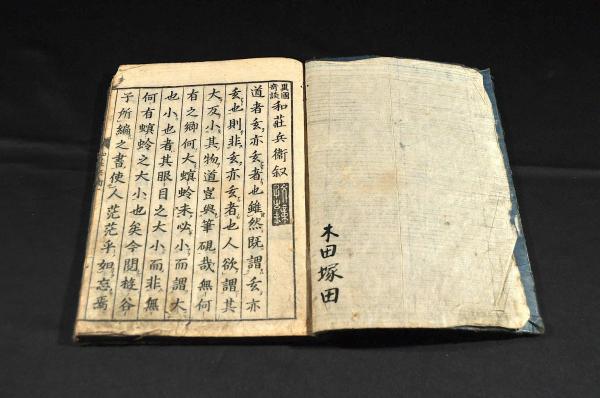 木田塚田
異國
奇談
和莊兵衛叙
道者玄亦玄者也雖然既謂玄亦
玄也則非玄亦玄者也人欲謂其
大反小其物道豈與筆硯哉無何
有之鄉何大螟蛉未必小而謂大
也小也者其眼目之大小而非無
何有螟蛉之大小也矣今閱遊谷
子所編之書使人茫茫乎如忘焉